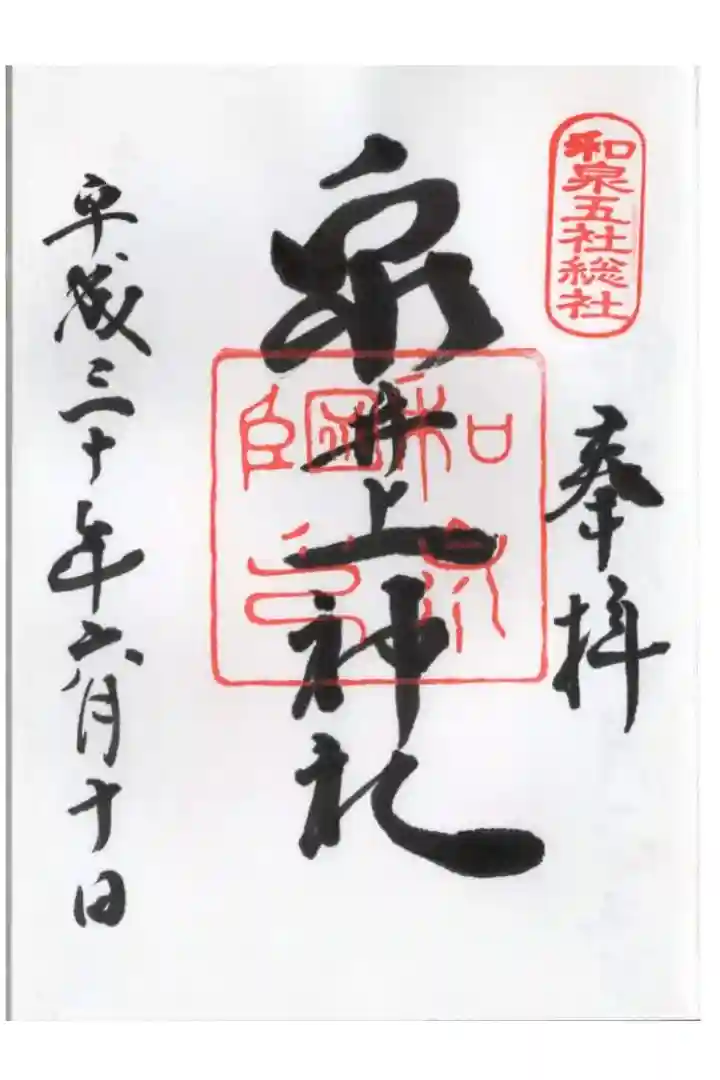 和泉五社総社
奉拝
泉井上神社
平成三十年六月十日